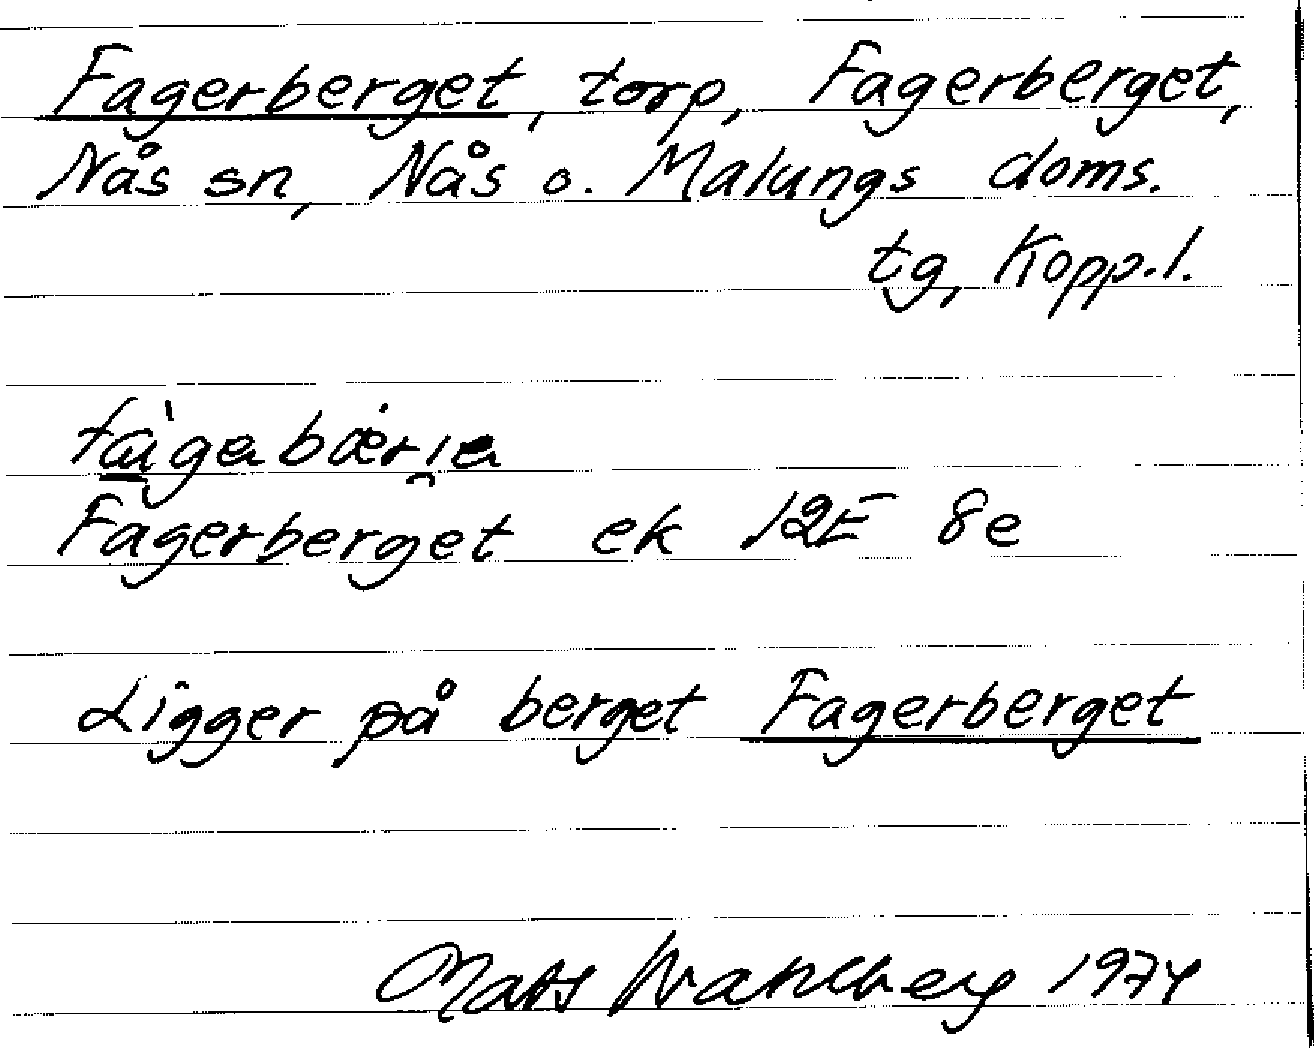 Fagerberget, torp, Fagerberget,
Nås sn, Nås o. Malungs doms.
tg, Kopp.l.
Fagerberget ek 12E 8e
Ligger på berget Fagerberget
Mats Wahlberg 1974